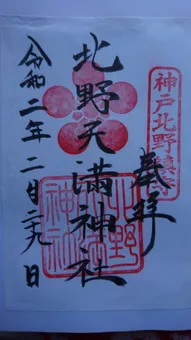 神戸北野鎮守
奉拝
北野天満神社
令和二年二月二九日
北野天満神社